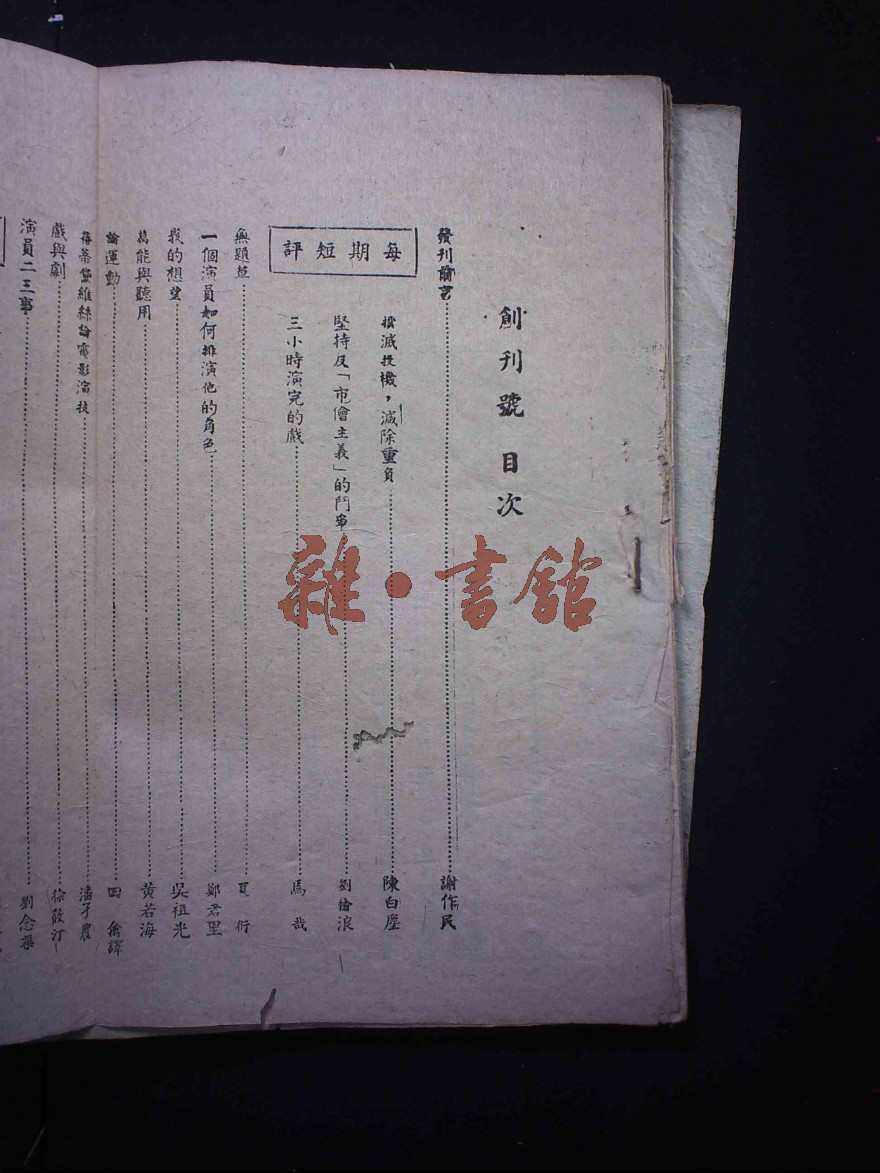 創刊號 目次
發刊前言 謝作民
每期短評
撲滅投機，減除重負 陳白塵
堅持反「市儈主義」的鬥爭 劉滄浪
三小時演完的戲 馬哉
無題草 夏衍
一個演員如何排演他的角色 鄭君里
我的想望 吳祖光
萬能與聽用 黃若海
論運動 田禽譯
蓓蒂黛維絲論電影演技 潘孑農
戲與劇 徐筱汀
演員二三事 劉念渠
雜·書館